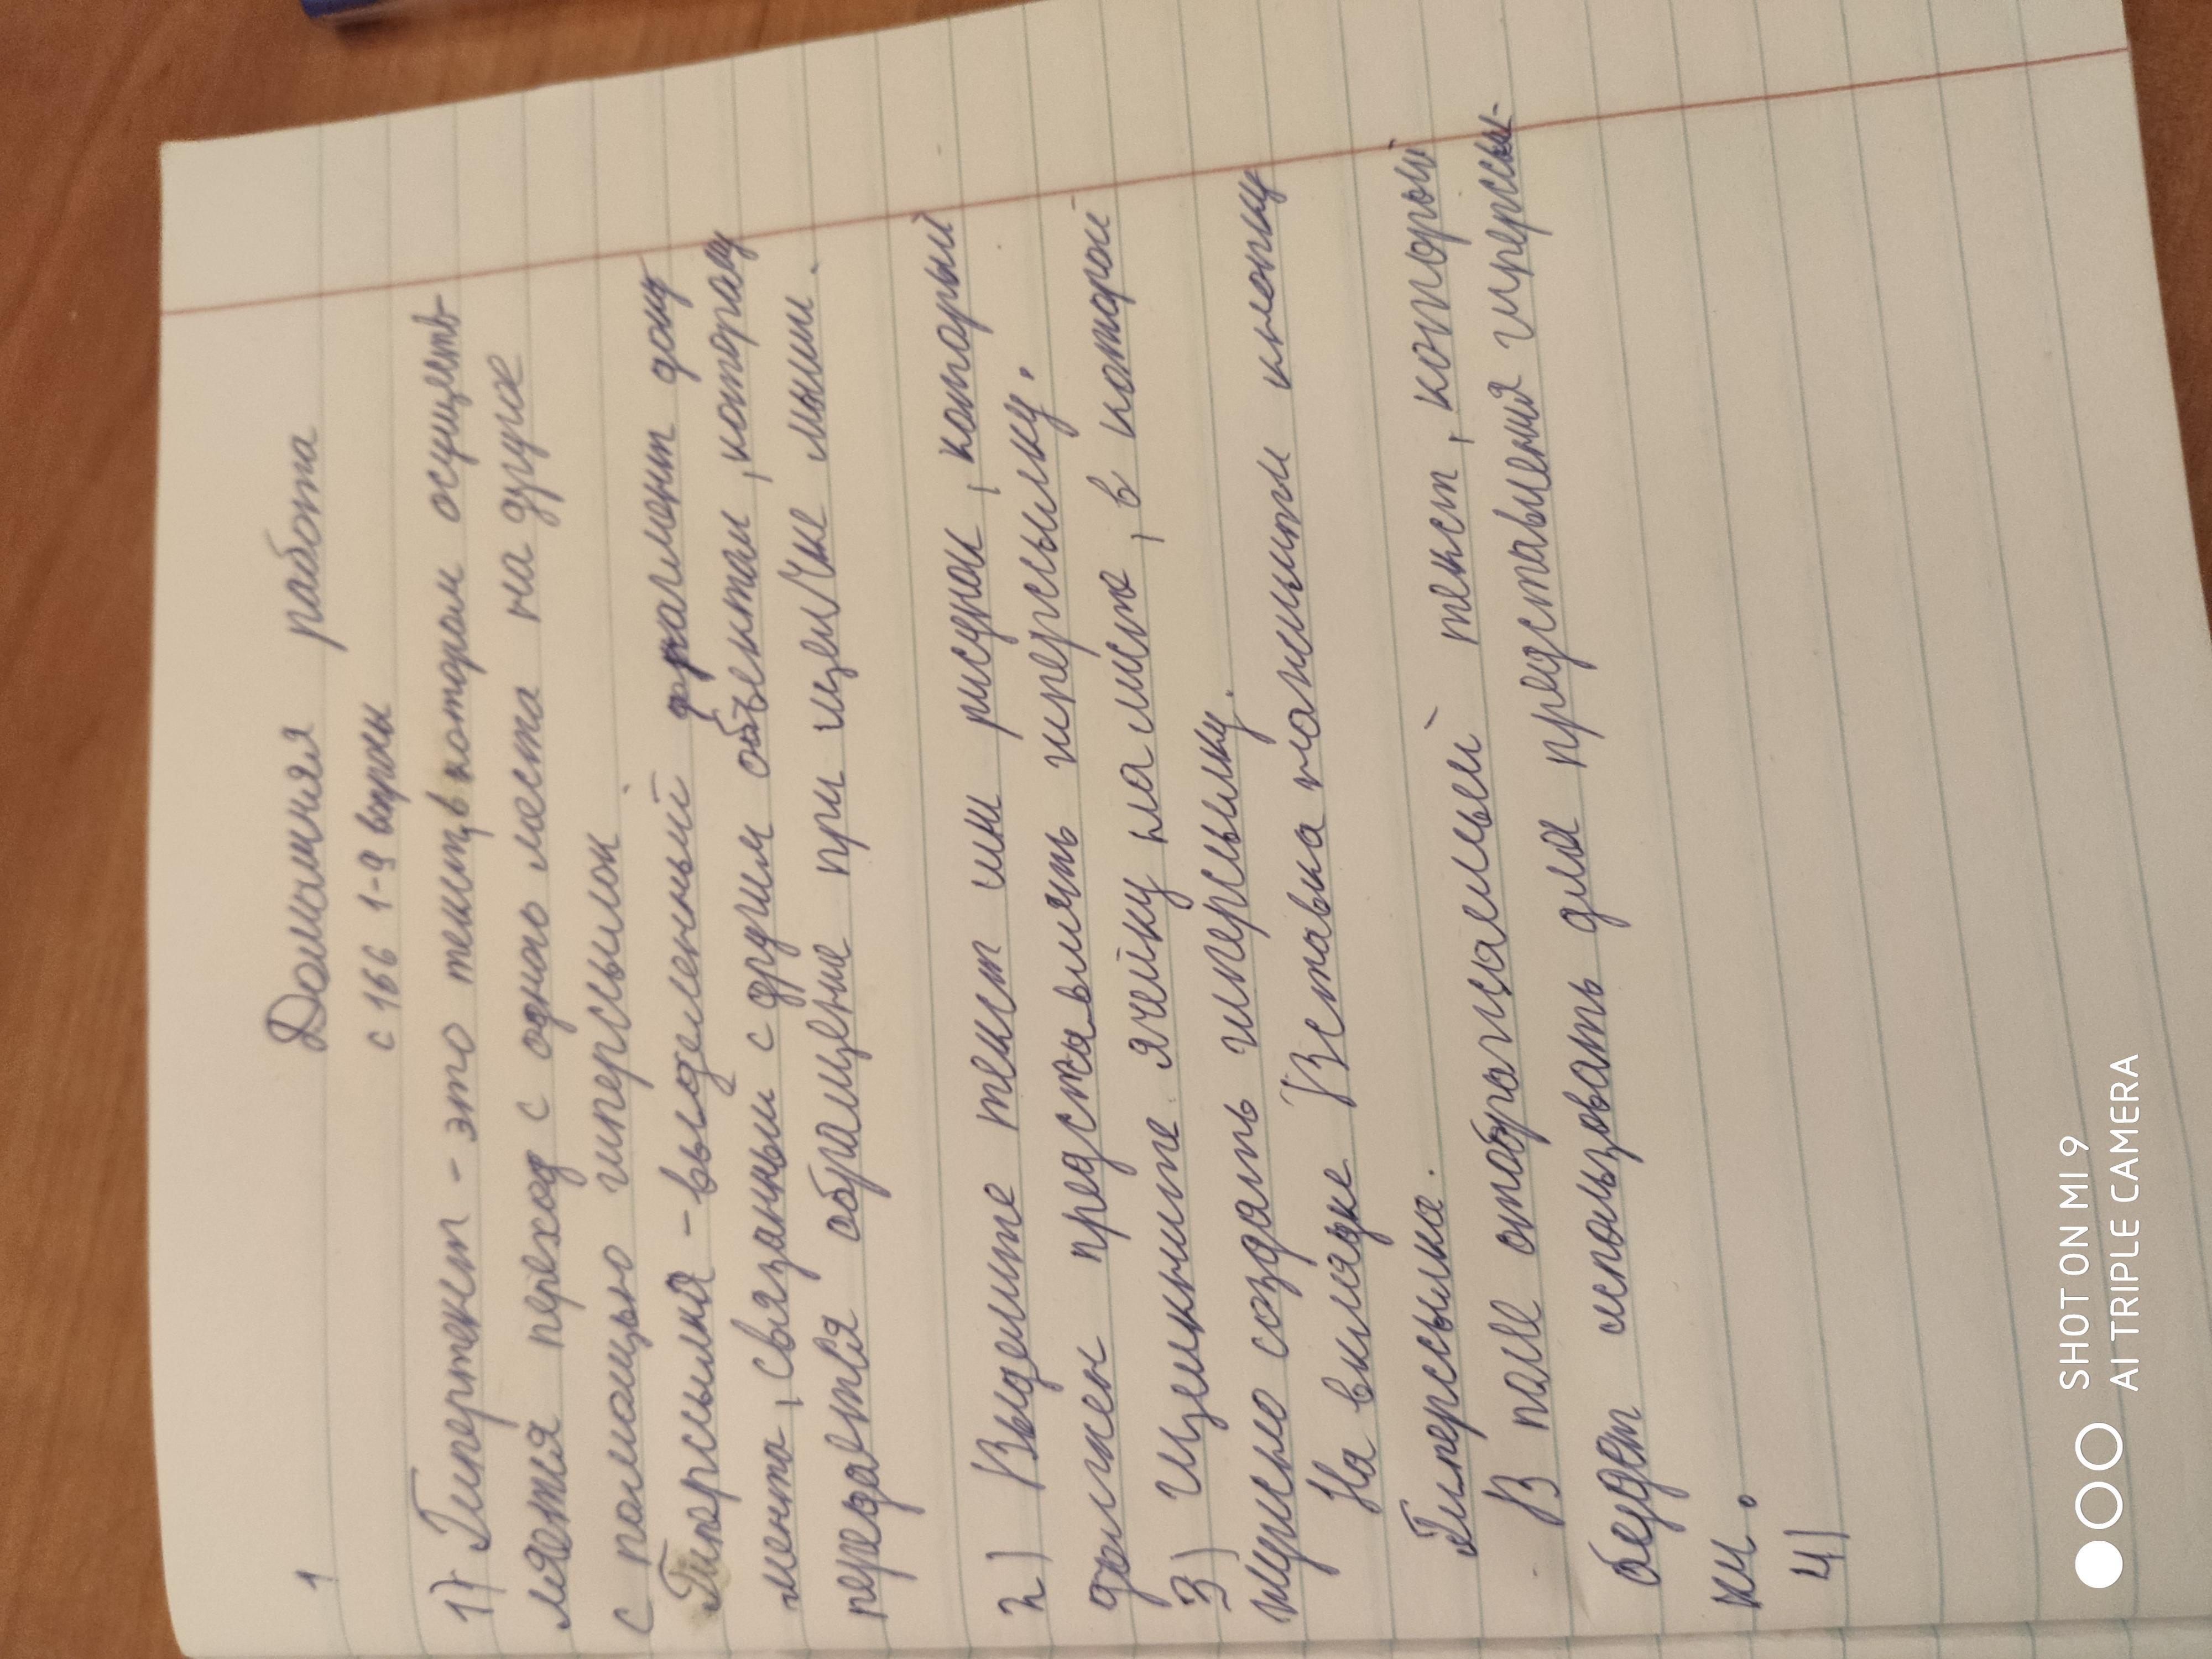 1
Домашняя работа
с 166 1-9 вопросы
1) Гипертекст - это текст, в котором осуществ-
ляется переход с одного места на другие
с помощью гиперссылок
Гиперссылка - выделенный фрагмент доку
мента, связанный с другим объектам, котораму
передаётся обращение при щелчке мыши.
2) Выделите текст или рисунок, который
должен представлять гиперссылку.
3) Щелкните ячейку на листе, в которой
нужно создать гиперссылку.
На вкладке Вставка нажмити кнопку
Гиперссылка.
В поле отображаемый текст, который
будет использовать для представления гиперссыл-
ки.
4)
SHOT ON MI 9
AI TRIPLE CAMERA